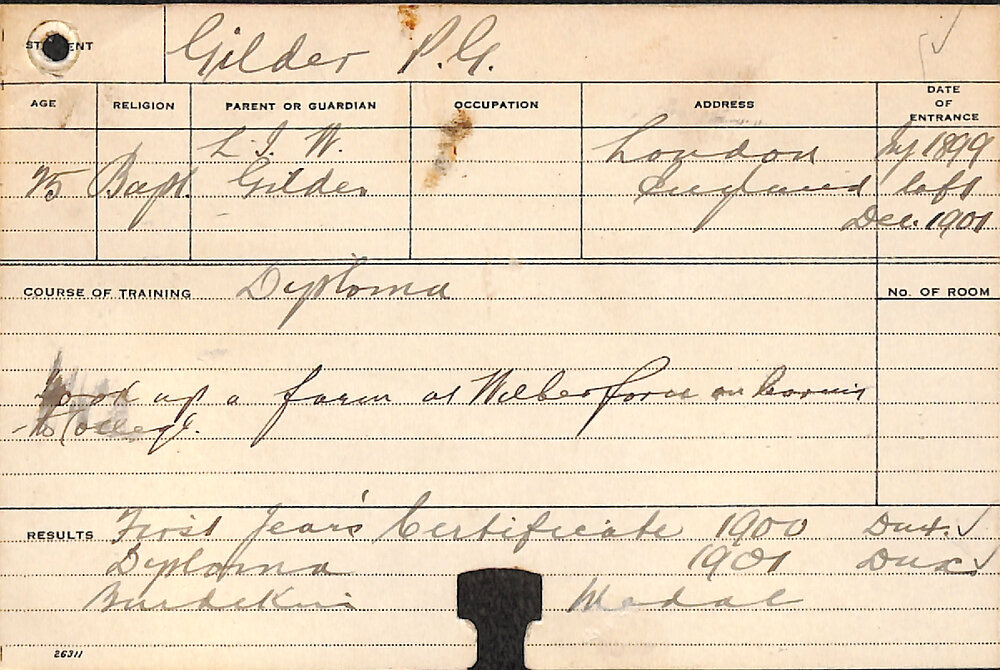 STUDENT Gilder P.G.
AGE RELIGION PARENT OR GUARDIAN OCCUPATION ADDRESS DATE OF ENTRANCE
L. J. W. London Jy 1899
25 Bapt. Gilder England left
Dec. 1901
COURSE OF TRAINING Diploma No. OF ROOM
Took up a farm at Wilberforce on leaving
College.
RESULTS First Year's Certificate 1900 Dux.
Diploma 1901 Dux
Burdekin Medal
26311